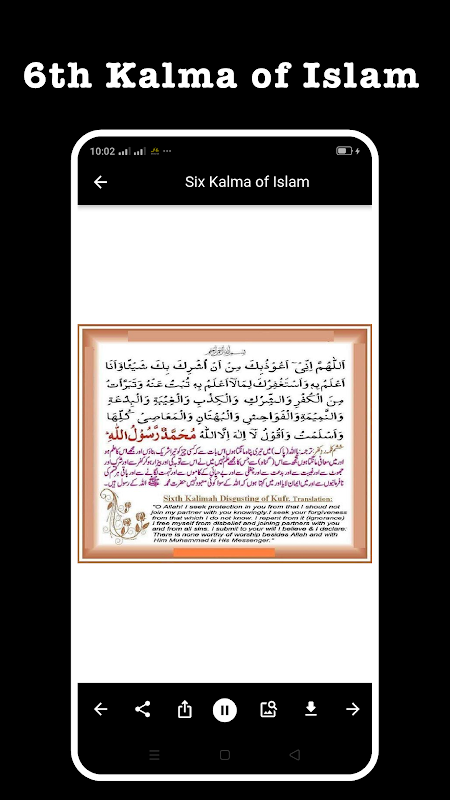 6th Kalma of Islam
10:02
Six Kalma of Islam
اَللّٰهُمَّ اِنِّیْۤ اَعُوْذُ بِكَ مِنْ اَنْ اُشْرِكَ بِكَ شَيْئًا وَّاَنَا
اَعْلَمُ بِهٖ وَاَسْتَغْفِرُكَ لِمَا لَاۤ اَعْلَمُ بِهٖ تُبْتُ عَنْهُ وَتَبَرَّاْتُ
مِنَ الْكُفْرِ وَالشِّرْكِ وَالْكِذْبِ وَالْغِيْبَةِ وَالْبِدْعَةِ
وَالنَّمِيْمَةِ وَالْفَوَاحِشِ وَالْبُهْتَانِ وَالْمَعَاصِیْ كُلِّهَا
وَاَسْلَمْتُ وَاَقُوْلُ لَاۤ اِلٰهَ اِلَّا اللّٰهُ مُحَمَّدٌ رَّسُوْلُ اللّٰهِ
Sixth Kalimah Disgusting of Kufr. Translation:
"O Allah! I seek protection in you from that I should not
join my partner with you knowingly.I seek your forgiveness
from that which i do not know. I repent from it (ignorance)
I free myself from disbelief and joining partners with you
and from all sins. I submit to your will I believe & I declare:
There is none worthy of worship besides Allah and with
Him Muhammad is His Messenger."